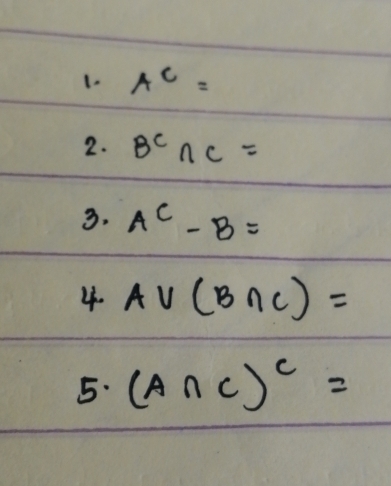 1. A^C =
2. B^C ∩ C =
3. A^C - B =
4. A ∪ (B ∩ C) =
5. (A ∩ C)^C =